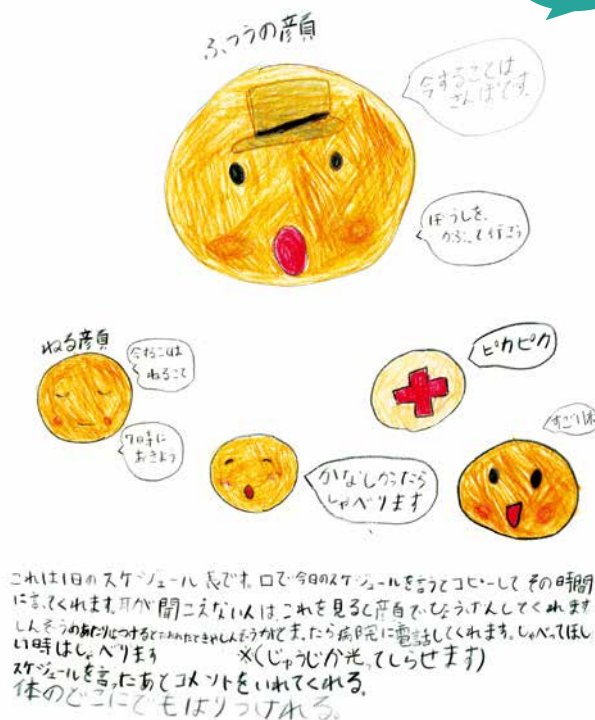 ふつうの顔
今することは
さんぽです。
ぼうしを、
かぶって行こう
ねる顔
今することは
ねること
7時に
おきよう
ピカピカ
かなしかったら
しゃべります
すごい
これは1日のスケジュール表です。口で今日のスケジュールを言うとコピーしてその時間
に言ってくれます。耳が聞こえない人は、これを見ると顔でひょうげんしてくれます
しんぞうのあたりにつけるとたおれたときやしんぞうが とまったら病院に電話してくれます。しゃべってほし
い時はしゃべります ※(じゅうじか光ってしらせます)
スケジュールを言ったあとコメントをいれてくれる。
体のどこにでもはりつけれる。